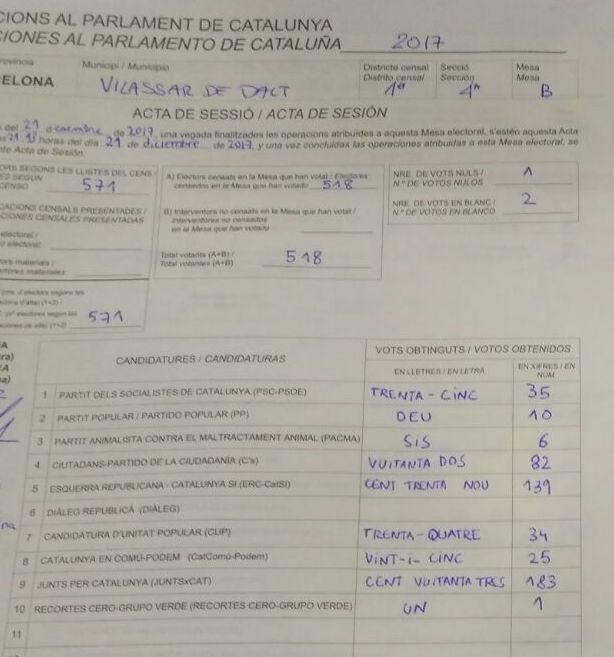 CIONS AL PARLAMENT DE CATALUNYA
CIONES AL PARLAMENTO DE CATALUÑA 2017
Municipi / Municipio
Districte censal Secció Mesa
Distrito censal Sección Mesa
ELONA VILASSAR DE DALT 1ª 4ª B
ACTA DE SESSIÓ / ACTA DE SESIÓN
del 21 de 2017, una vegada finalitzades les operacions atribuïdes a aquesta Mesa electoral, s'estén aquesta Acta
horas del día 21 de diciembre de 2017, y una vez concluidas las operaciones atribuidas a esta Mesa electoral, se
Acta de Sesión
ORS SEGONS LES LLISTES DEL CENS
CENSO 571
A) Electors censats en la Mesa que han votat / Electores
censados en la Mesa que han votado 518
NRE. DE VOTS NULS /
N.º DE VOTOS NULOS 1
CACIONS CENSALS PRESENTADES /
CIONES CENSALES PRESENTADAS
B) Interventors no censats en la Mesa que han votat /
Interventores no censados
en la Mesa que han votado
NRE. DE VOTS EN BLANC /
N.º DE VOTOS EN BLANCO 2
electoral /
electoral:
Total votants (A+B) /
Total votantes (A+B) 518
571
CANDIDATURES / CANDIDATURAS
VOTS OBTINGUTS / VOTOS OBTENIDOS
EN LLETRES / EN LETRA
EN XIFRES / EN
NÚM.
1 PARTIT DELS SOCIALISTES DE CATALUNYA (PSC-PSOE) TRENTA-CINC 35
2 PARTIT POPULAR / PARTIDO POPULAR (PP) DEU 10
3 PARTIT ANIMALISTA CONTRA EL MALTRACTAMENT ANIMAL (PACMA) SIS 6
4 CIUTADANS-PARTIDO DE LA CIUDADANÍA (C's) VUITANTA DOS 82
5 ESQUERRA REPUBLICANA - CATALUNYA SÍ (ERC-CatSí) CENT TRENTA NOU 139
6 DIÀLEG REPUBLICÀ (DIÀLEG)
7 CANDIDATURA D'UNITAT POPULAR (CUP) TRENTA-QUATRE 34
8 CATALUNYA EN COMÚ-PODEM (CatComú-Podem) VINT-I-CINC 25
9 JUNTS PER CATALUNYA (JUNTSxCAT) CENT VUITANTA TRES 183
10 RECORTES CERO-GRUPO VERDE (RECORTES CERO-GRUPO VERDE) UN 1
11